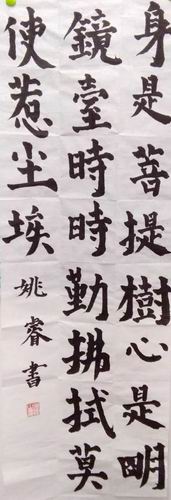 身是菩提樹心是明
鏡臺時時勤拂拭莫
使惹尘埃
姚睿書